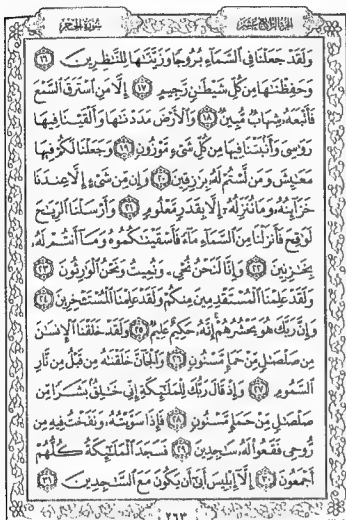 سُورَةُ الحِجْرِ
الجُزْءُ الرَّابِعَ عَشَرَ
وَلَقَدْ جَعَلْنَا فِى ٱلسَّمَآءِ بُرُوجًا وَزَيَّنَّٰهَا لِلنَّٰظِرِينَ ١٦
وَحَفِظْنَٰهَا مِن كُلِّ شَيْطَٰنٍ رَّجِيمٍ ١٧ إِلَّا مَنِ ٱسْتَرَقَ ٱلسَّمْعَ
فَأَتْبَعَهُۥ شِهَابٌ مُّبِينٌ ١٨ وَٱلْأَرْضَ مَدَدْنَٰهَا وَأَلْقَيْنَا فِيهَا
رَوَٰسِىَ وَأَنۢبَتْنَا فِيهَا مِن كُلِّ شَىْءٍ مَّوْزُونٍ ١٩ وَجَعَلْنَا لَكُمْ فِيهَا
مَعَٰيِشَ وَمَن لَّسْتُمْ لَهُۥ بِرَٰزِقِينَ ٢٠ وَإِن مِّن شَىْءٍ إِلَّا عِندَنَا
خَزَآئِنُهُۥ وَمَا نُنَزِّلُهُۥٓ إِلَّا بِقَدَرٍ مَّعْلُومٍ ٢١ وَأَرْسَلْنَا ٱلرِّيَٰحَ
لَوَٰقِحَ فَأَنزَلْنَا مِنَ ٱلسَّمَآءِ مَآءً فَأَسْقَيْنَٰكُمُوهُ وَمَآ أَنتُمْ لَهُۥ
بِخَٰزِنِينَ ٢٢ وَإِنَّا لَنَحْنُ نُحْىِۦ وَنُمِيتُ وَنَحْنُ ٱلْوَٰرِثُونَ ٢٣
وَلَقَدْ عَلِمْنَا ٱلْمُسْتَقْدِمِينَ مِنكُمْ وَلَقَدْ عَلِمْنَا ٱلْمُسْتَـْٔخِرِينَ ٢٤
وَإِنَّ رَبَّكَ هُوَ يَحْشُرُهُمْ إِنَّهُۥ حَكِيمٌ عَلِيمٌ ٢٥ وَلَقَدْ خَلَقْنَا ٱلْإِنسَٰنَ
مِن صَلْصَٰلٍ مِّنْ حَمَإٍ مَّسْنُونٍ ٢٦ وَٱلْجَآنَّ خَلَقْنَٰهُ مِن قَبْلُ مِن نَّارِ
ٱلسَّمُومِ ٢٧ وَإِذْ قَالَ رَبُّكَ لِلْمَلَٰٓئِكَةِ إِنِّى خَٰلِقٌۢ بَشَرًا مِّن
صَلْصَٰلٍ مِّنْ حَمَإٍ مَّسْنُونٍ ٢٨ فَإِذَا سَوَّيْتُهُۥ وَنَفَخْتُ فِيهِ مِن
رُّوحِى فَقَعُوا۟ لَهُۥ سَٰجِدِينَ ٢٩ فَسَجَدَ ٱلْمَلَٰٓئِكَةُ كُلُّهُمْ
أَجْمَعُونَ ٣٠ إِلَّآ إِبْلِيسَ أَبَىٰٓ أَن يَكُونَ مَعَ ٱلسَّٰجِدِينَ ٣١
٢٦٣